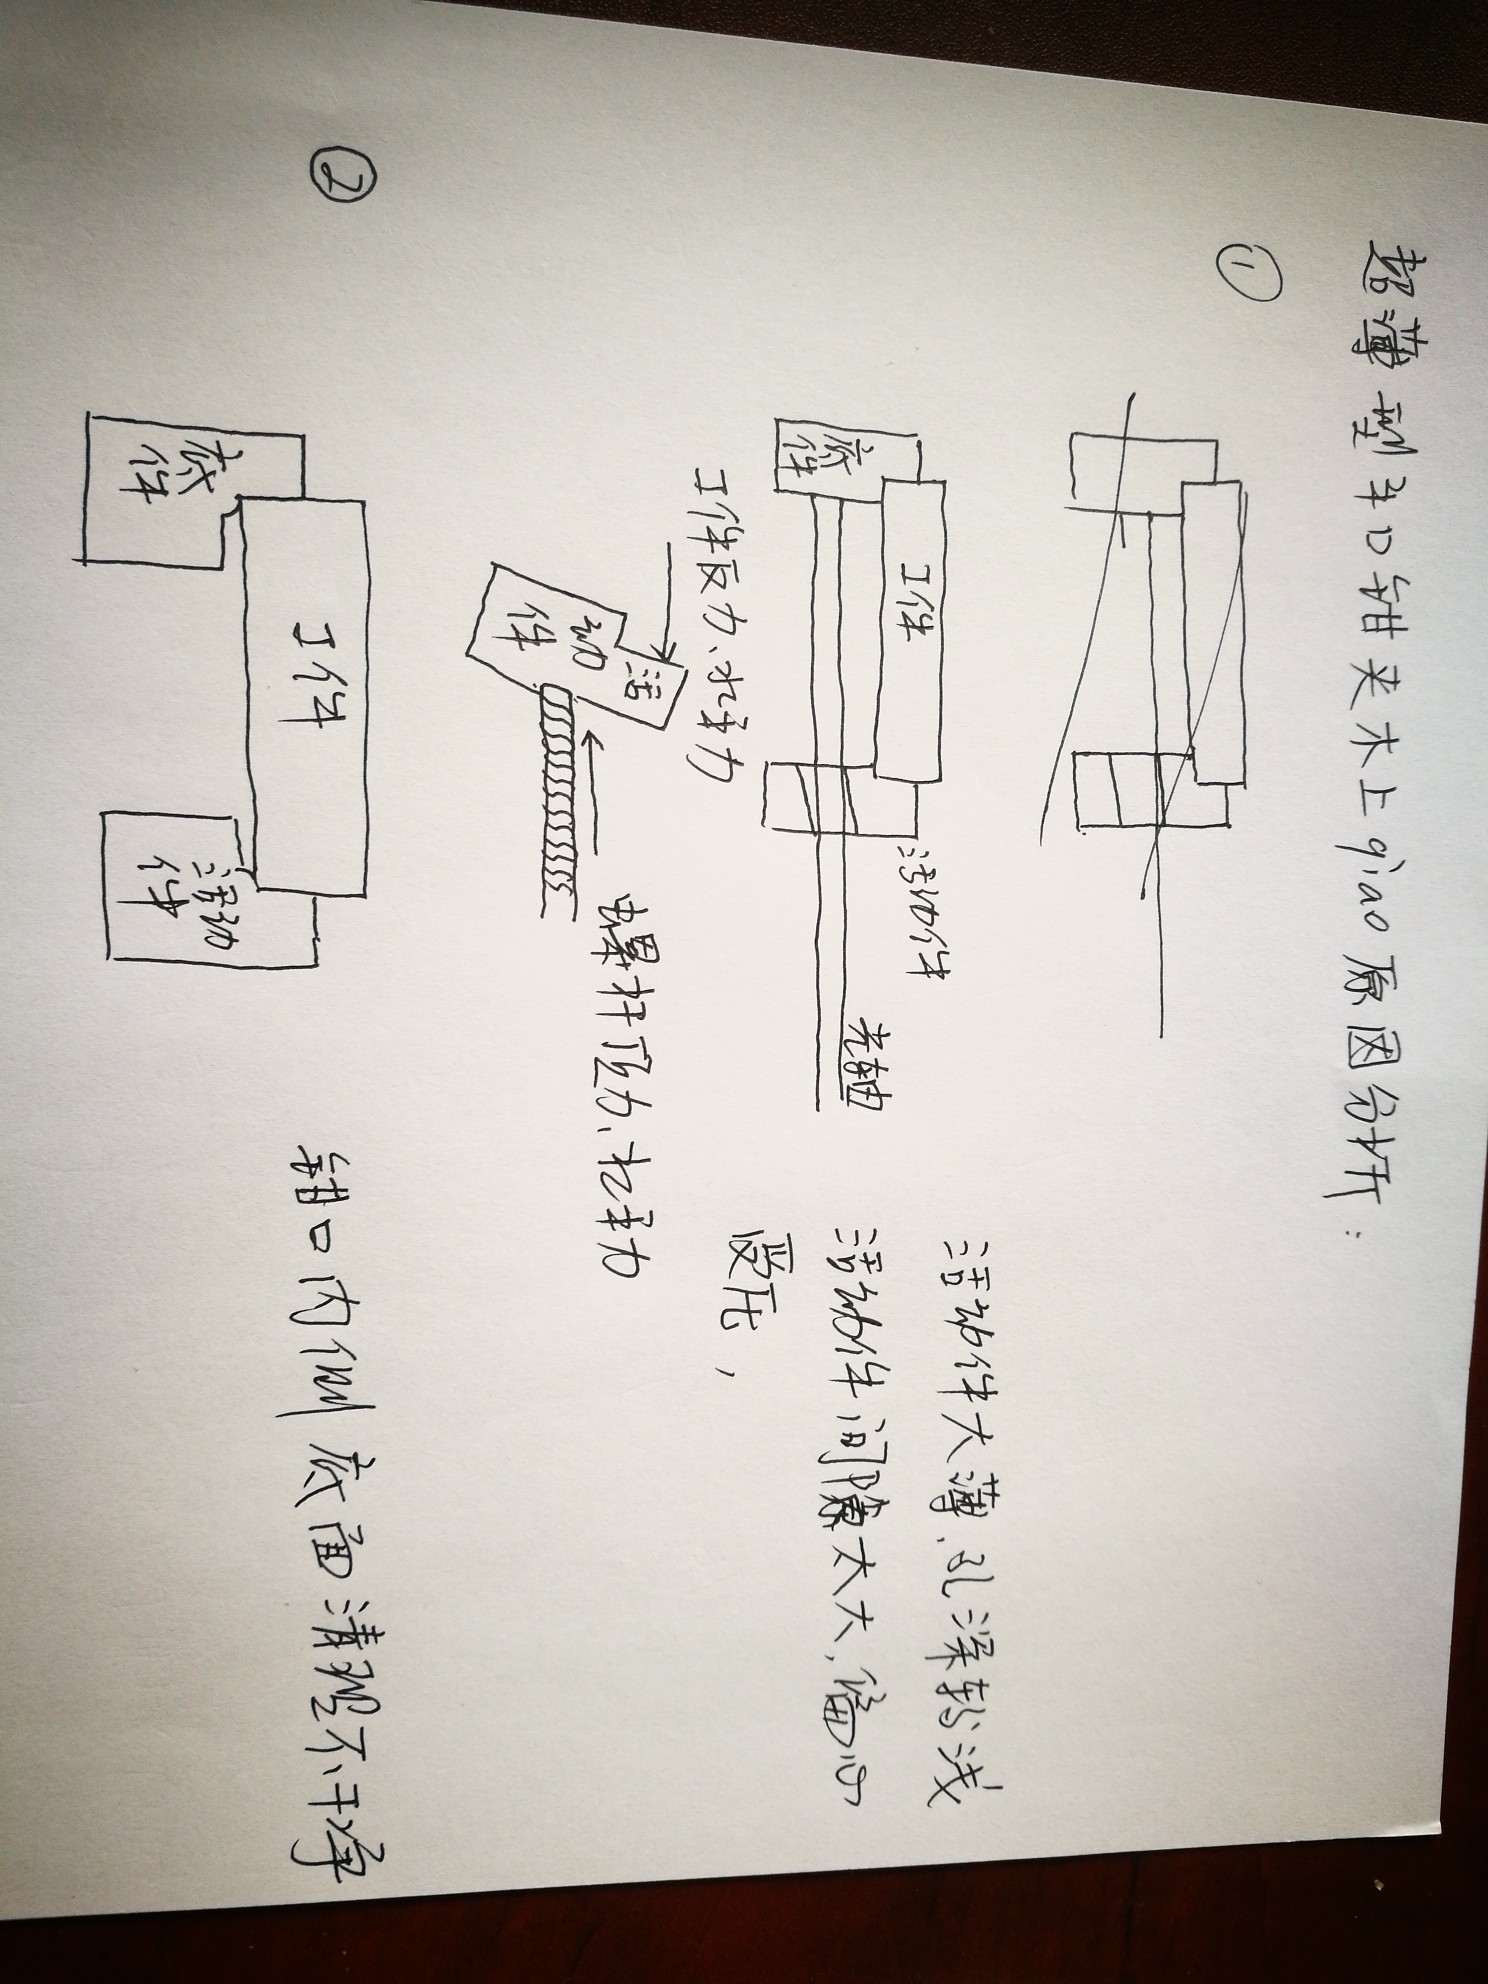 超薄型平口钳夹木上qiao原因分析:
①
工件
底件
活动件
光轴
活动件太薄,孔深较浅
活动件间隙太大,偏心
受压,
工件反力、水平力
活动件
螺杆顶力、水平力
②
底件
工件
活动件
钳口内侧底面清理不干净